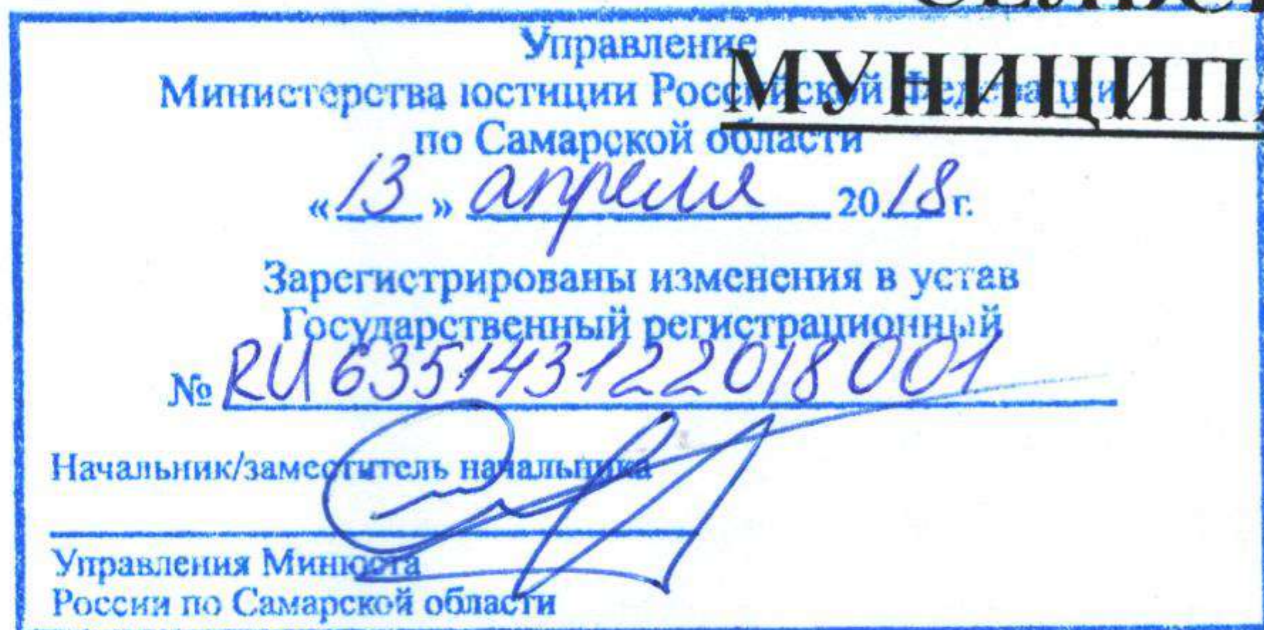 Управление
Министерства юстиции Российской Федерации
МУНИЦИП
по Самарской области
«13» апреля 2018г.
Зарегистрированы изменения в устав
Государственный регистрационный
№ RU635143122018001
Начальник/заместитель начальника
Управления Минюста
России по Самарской области